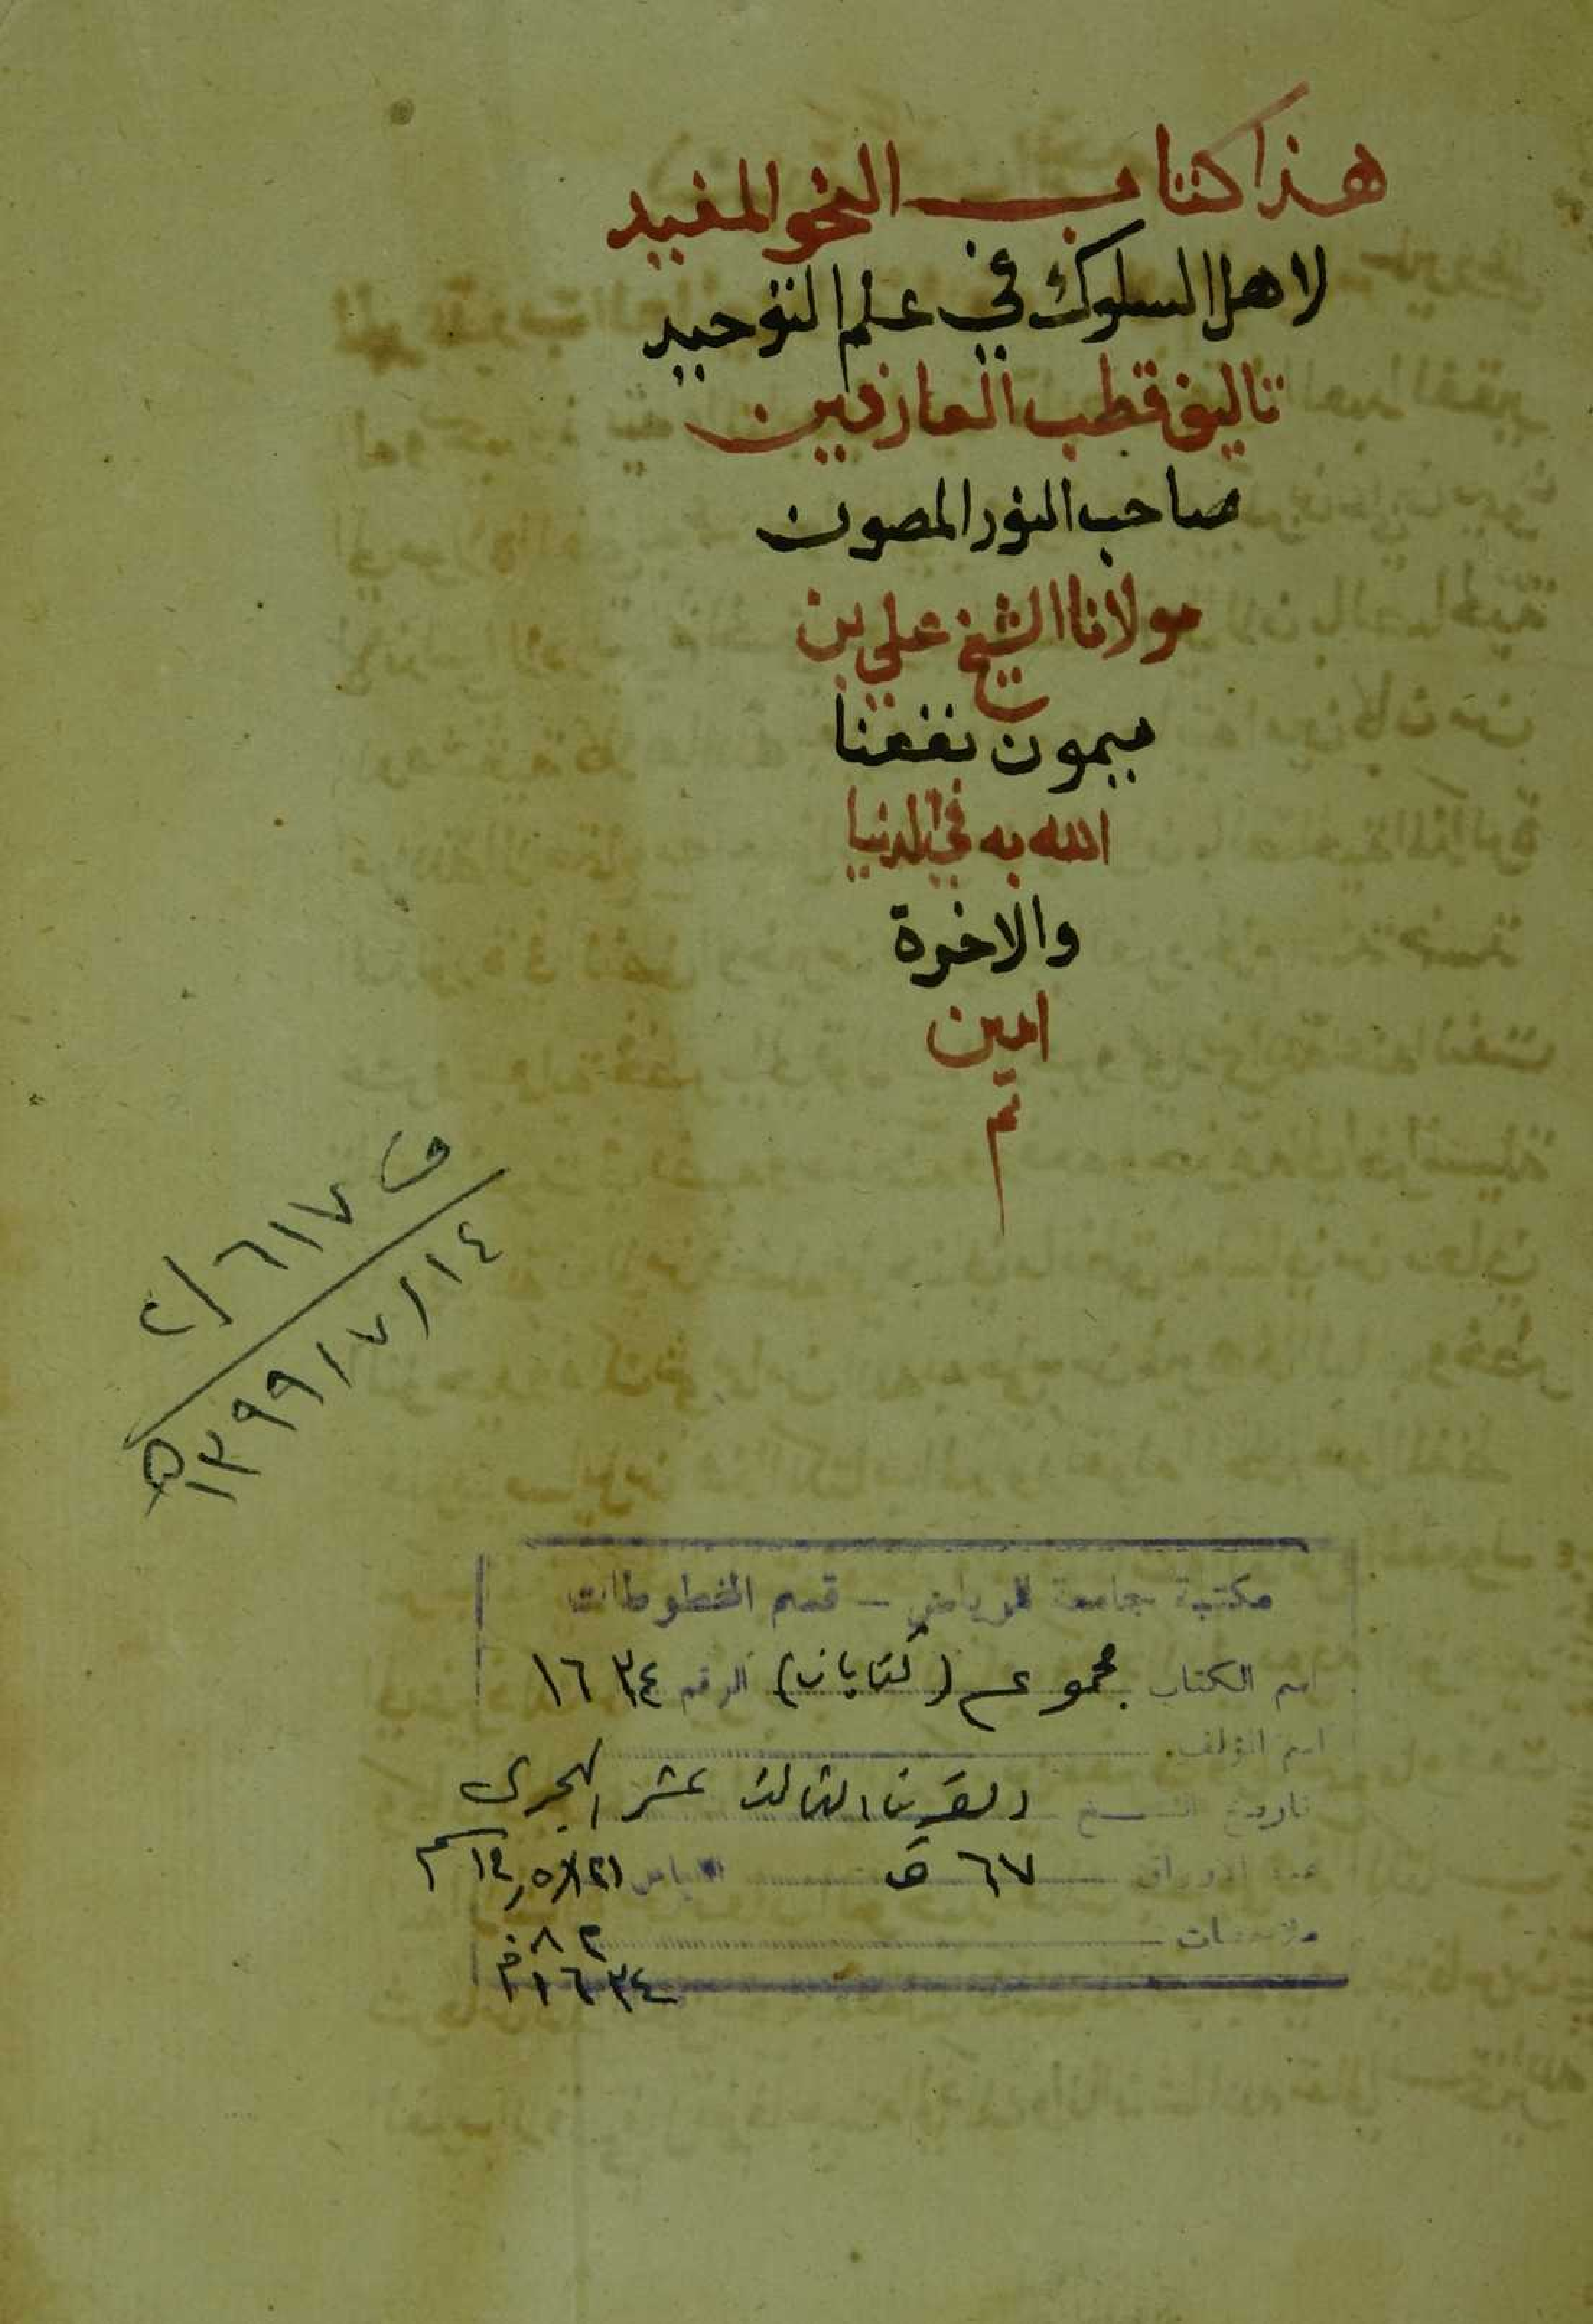 هذا كتاب النحو المفيد
لاهل السلوك في علم التوحيد
تاليف قطب العارفين
صاحب النور المصون
مولانا الشيخ علي بن
ميمون نفعنا
الله به في الدنيا
والاخرة
امين
تم
ف ٦١٧/٢
١٣٩٩/٧/١٤ ه
مكتبة جامعة الرياض - قسم المخطوطات
اسم الكتاب مجموع (كتابان) الرقم ١٦٣٤
اسم المؤلف
تاريخ النسخ القرن الثالث عشر الهجرى
عدد الاوراق ٦٧ ق
ملاحظات
١٦٣٤